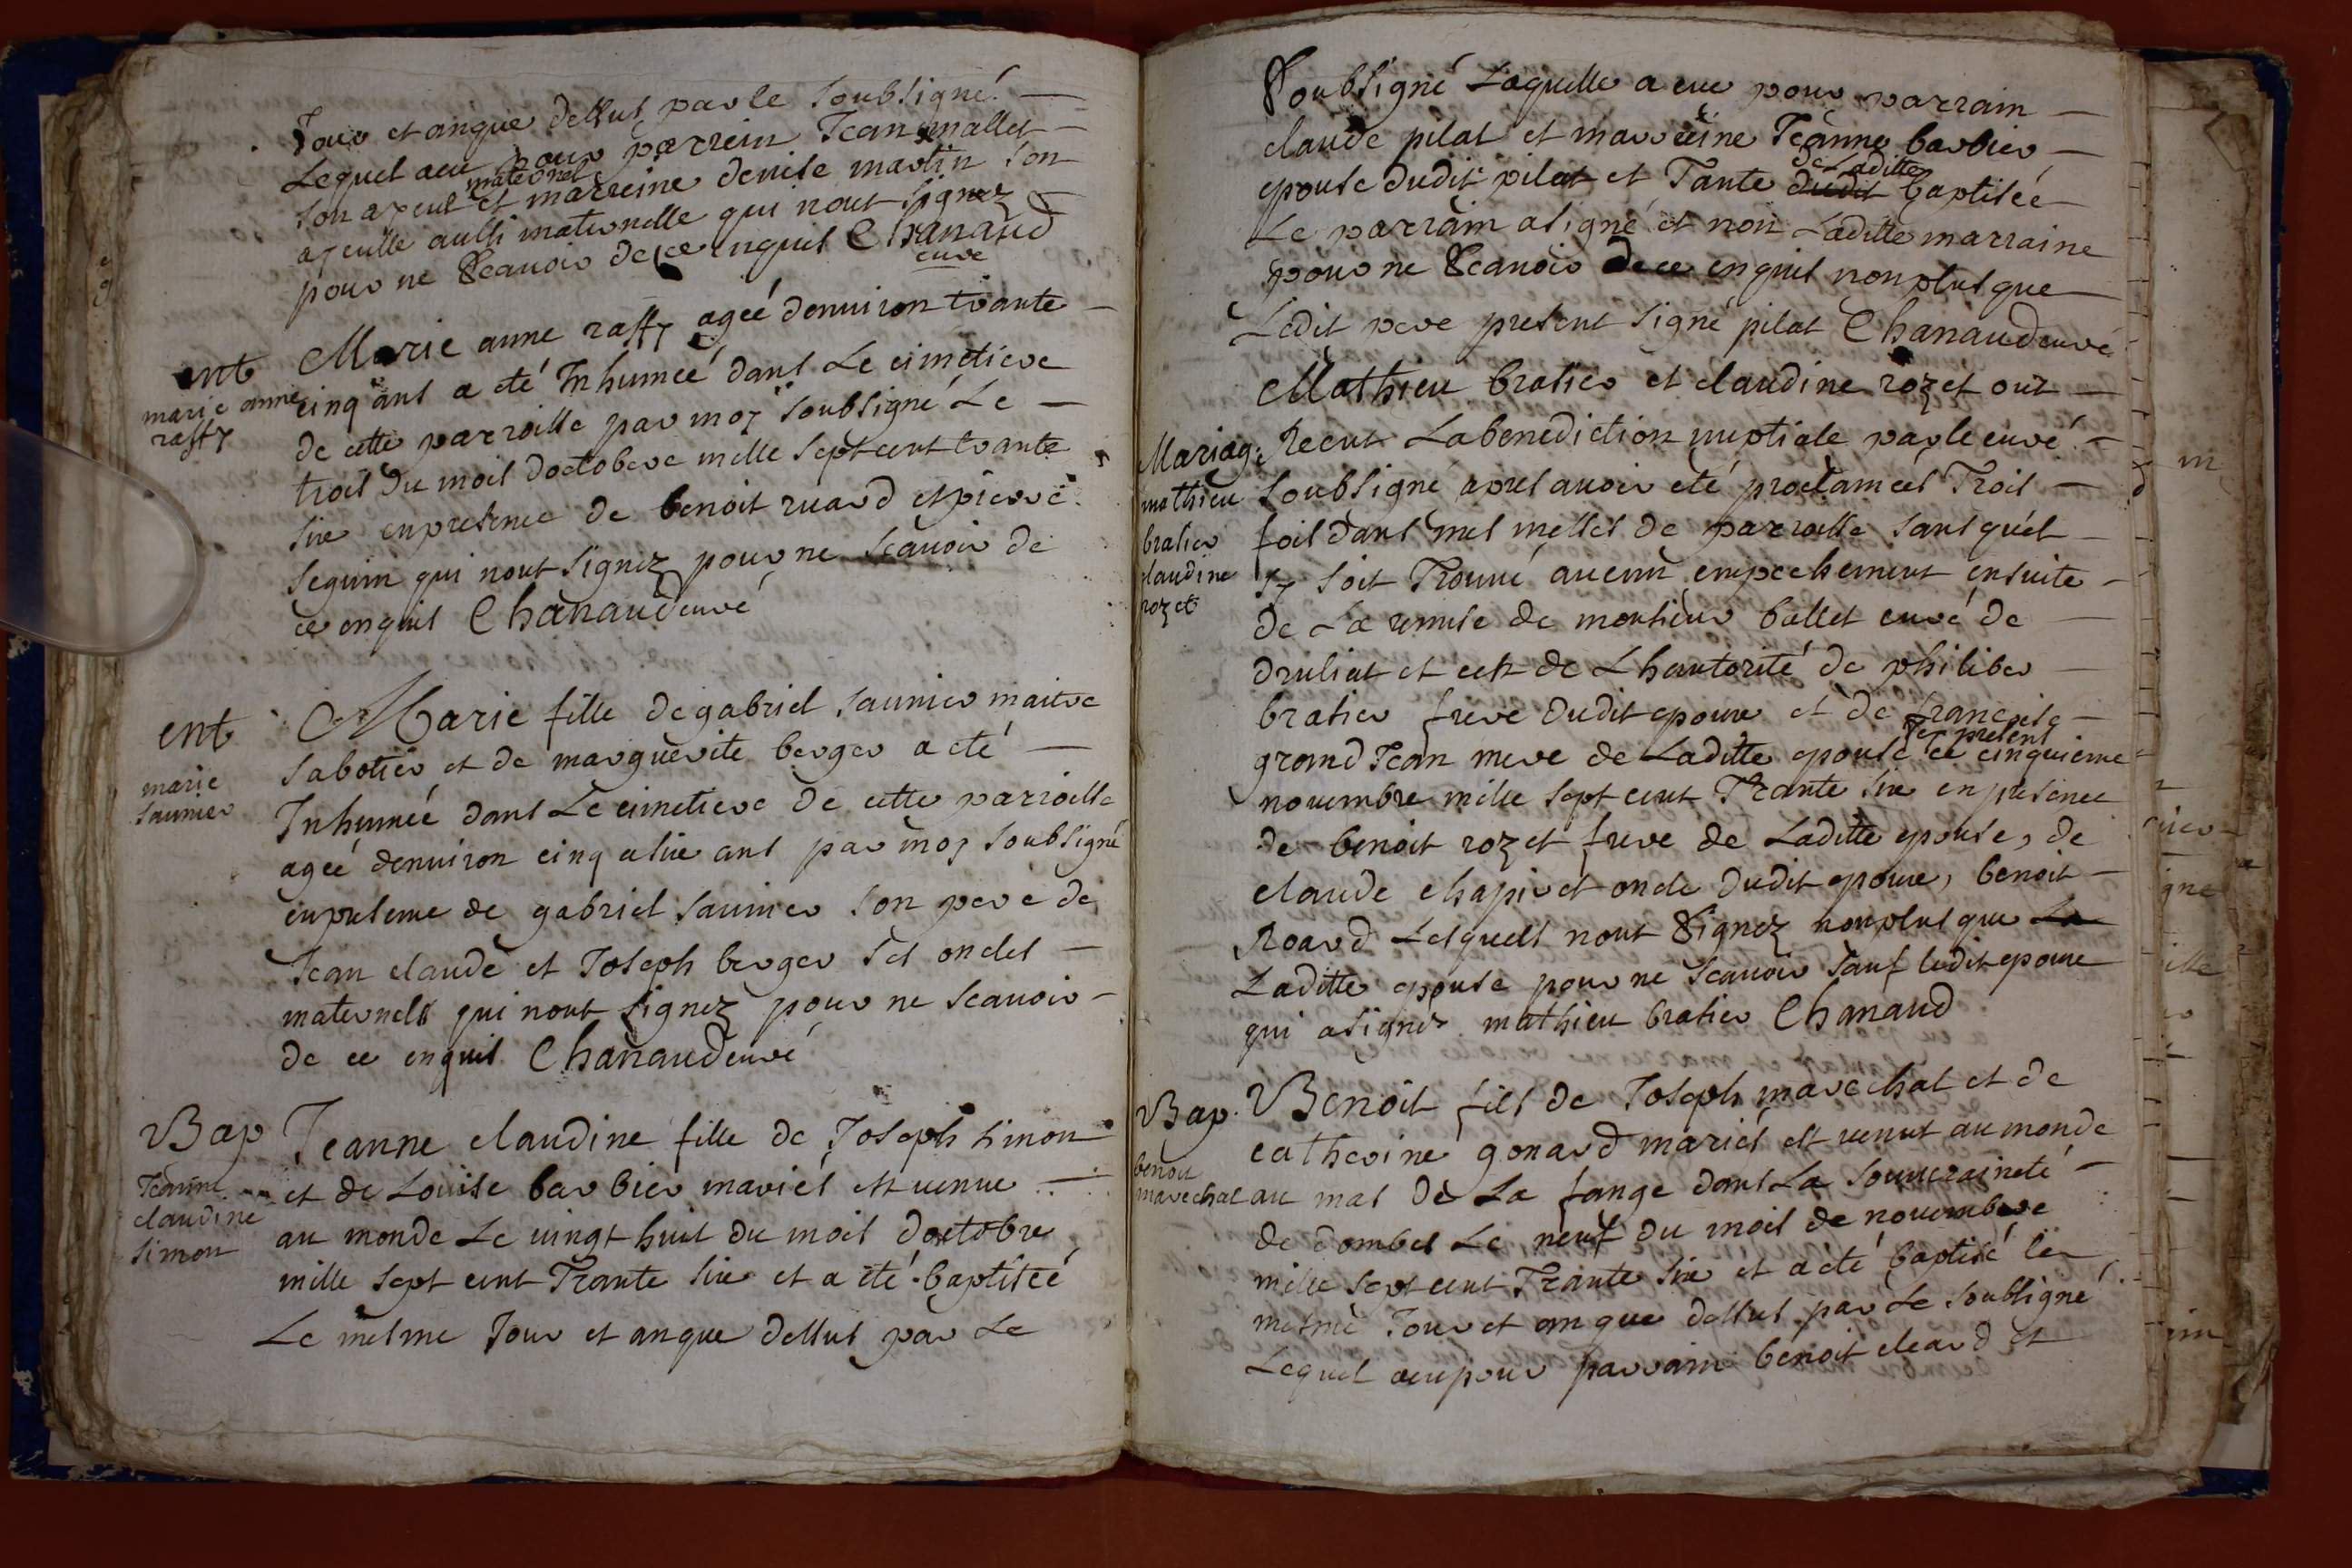 Jour et anque dessus par le soubsigné
Lequel aeu pour parrein Jean mallet
maternel
son ayeul et marreine denise martin son
ayeulle aussi maternelle qui nont signez
pour ne scauoir de ce enquis Chanaud
curé
ent
marie anne
rassy
Marie anne rassy agée denuiron trante
cinq ans a eté Inhumeé dans Le cimetiere
de cette parroisse par moy soubsigné Le
trois du mois doctobere mille sept cent trante
six enpresence de benoit ruard et pierre
seguin qui nont signez pour ne scauoir de
ce enquis Chanaud curé
ent
marie
saunier
Marie fille de gabriel saunier maitre
sabotier et de marguerite berger a eté
Inhumeé dans Le cimetiere de cette parroisse
ageé denuiron cinq a six ans par moy soubsigné
enpresence de gabriel saunier son pere de
Jean claude et Joseph berger ses oncles
maternels qui nont signez pour ne scauoir
de ce enquis Chanaud curé
Bap
Jeanne
claudine
simon
Jeanne claudine fille de Joseph simon
et de Louise barbier mariés est venue
au monde Le vingt huit du mois doctobre
mille sept cent Trante six et a eté baptiseé
Le mesme Jour et anque dessus par Le
Soubsigné Laquelle a eue pour parrain
claude pilat et marreine Jeanne barbier
de Laditte
epouse dudit pilat et Tante dudit baptiseé
Le parrain asigné et non Laditte marraine
pour ne Scauoir de ce enquis nonplus que
Ledit pere present signé pilat Chanaud curé
Mariag:
mathieu
bratier
claudine
rozet
Mathieu bratier et claudine rozet ont
Receut Labenediction nuptiale par le curé
soubsigné apres auoir eté proclameés Trois
fois dans mes messes de parroisse sans quil
sy soit Trouué aucun empechement ensuite
de La remise de monsieur ballet curé de
druliat et cest de Lhautorité de philiber
bratier frere dudit epoux et de francoise
icy present
grand Jean mere de Laditte epouse ce cinquieme
nouembre mille sept cent Trante six enpresence
de benoit rozet frere de Laditte epouse, de
claude chapiret oncle dudit epoux, benoit
Roard Lesquels nont Signez nonplus que La
Laditte epouse pour ne scauoir sauf ledit epoux
qui a signez mathieu bratier Chanaud
Bap.
benoit
marechal
Benoit fils de Joseph marechal et de
catherine gonard mariés est venut au monde
au mas de La fange dans La souueraineté
de dombes Le neuf du mois de nouembere
mille sept cent Trante six et a eté baptisé les
mesme Jour et anque dessus par Le soubsigné
Lequel aeu pour parrain benoit cleard et